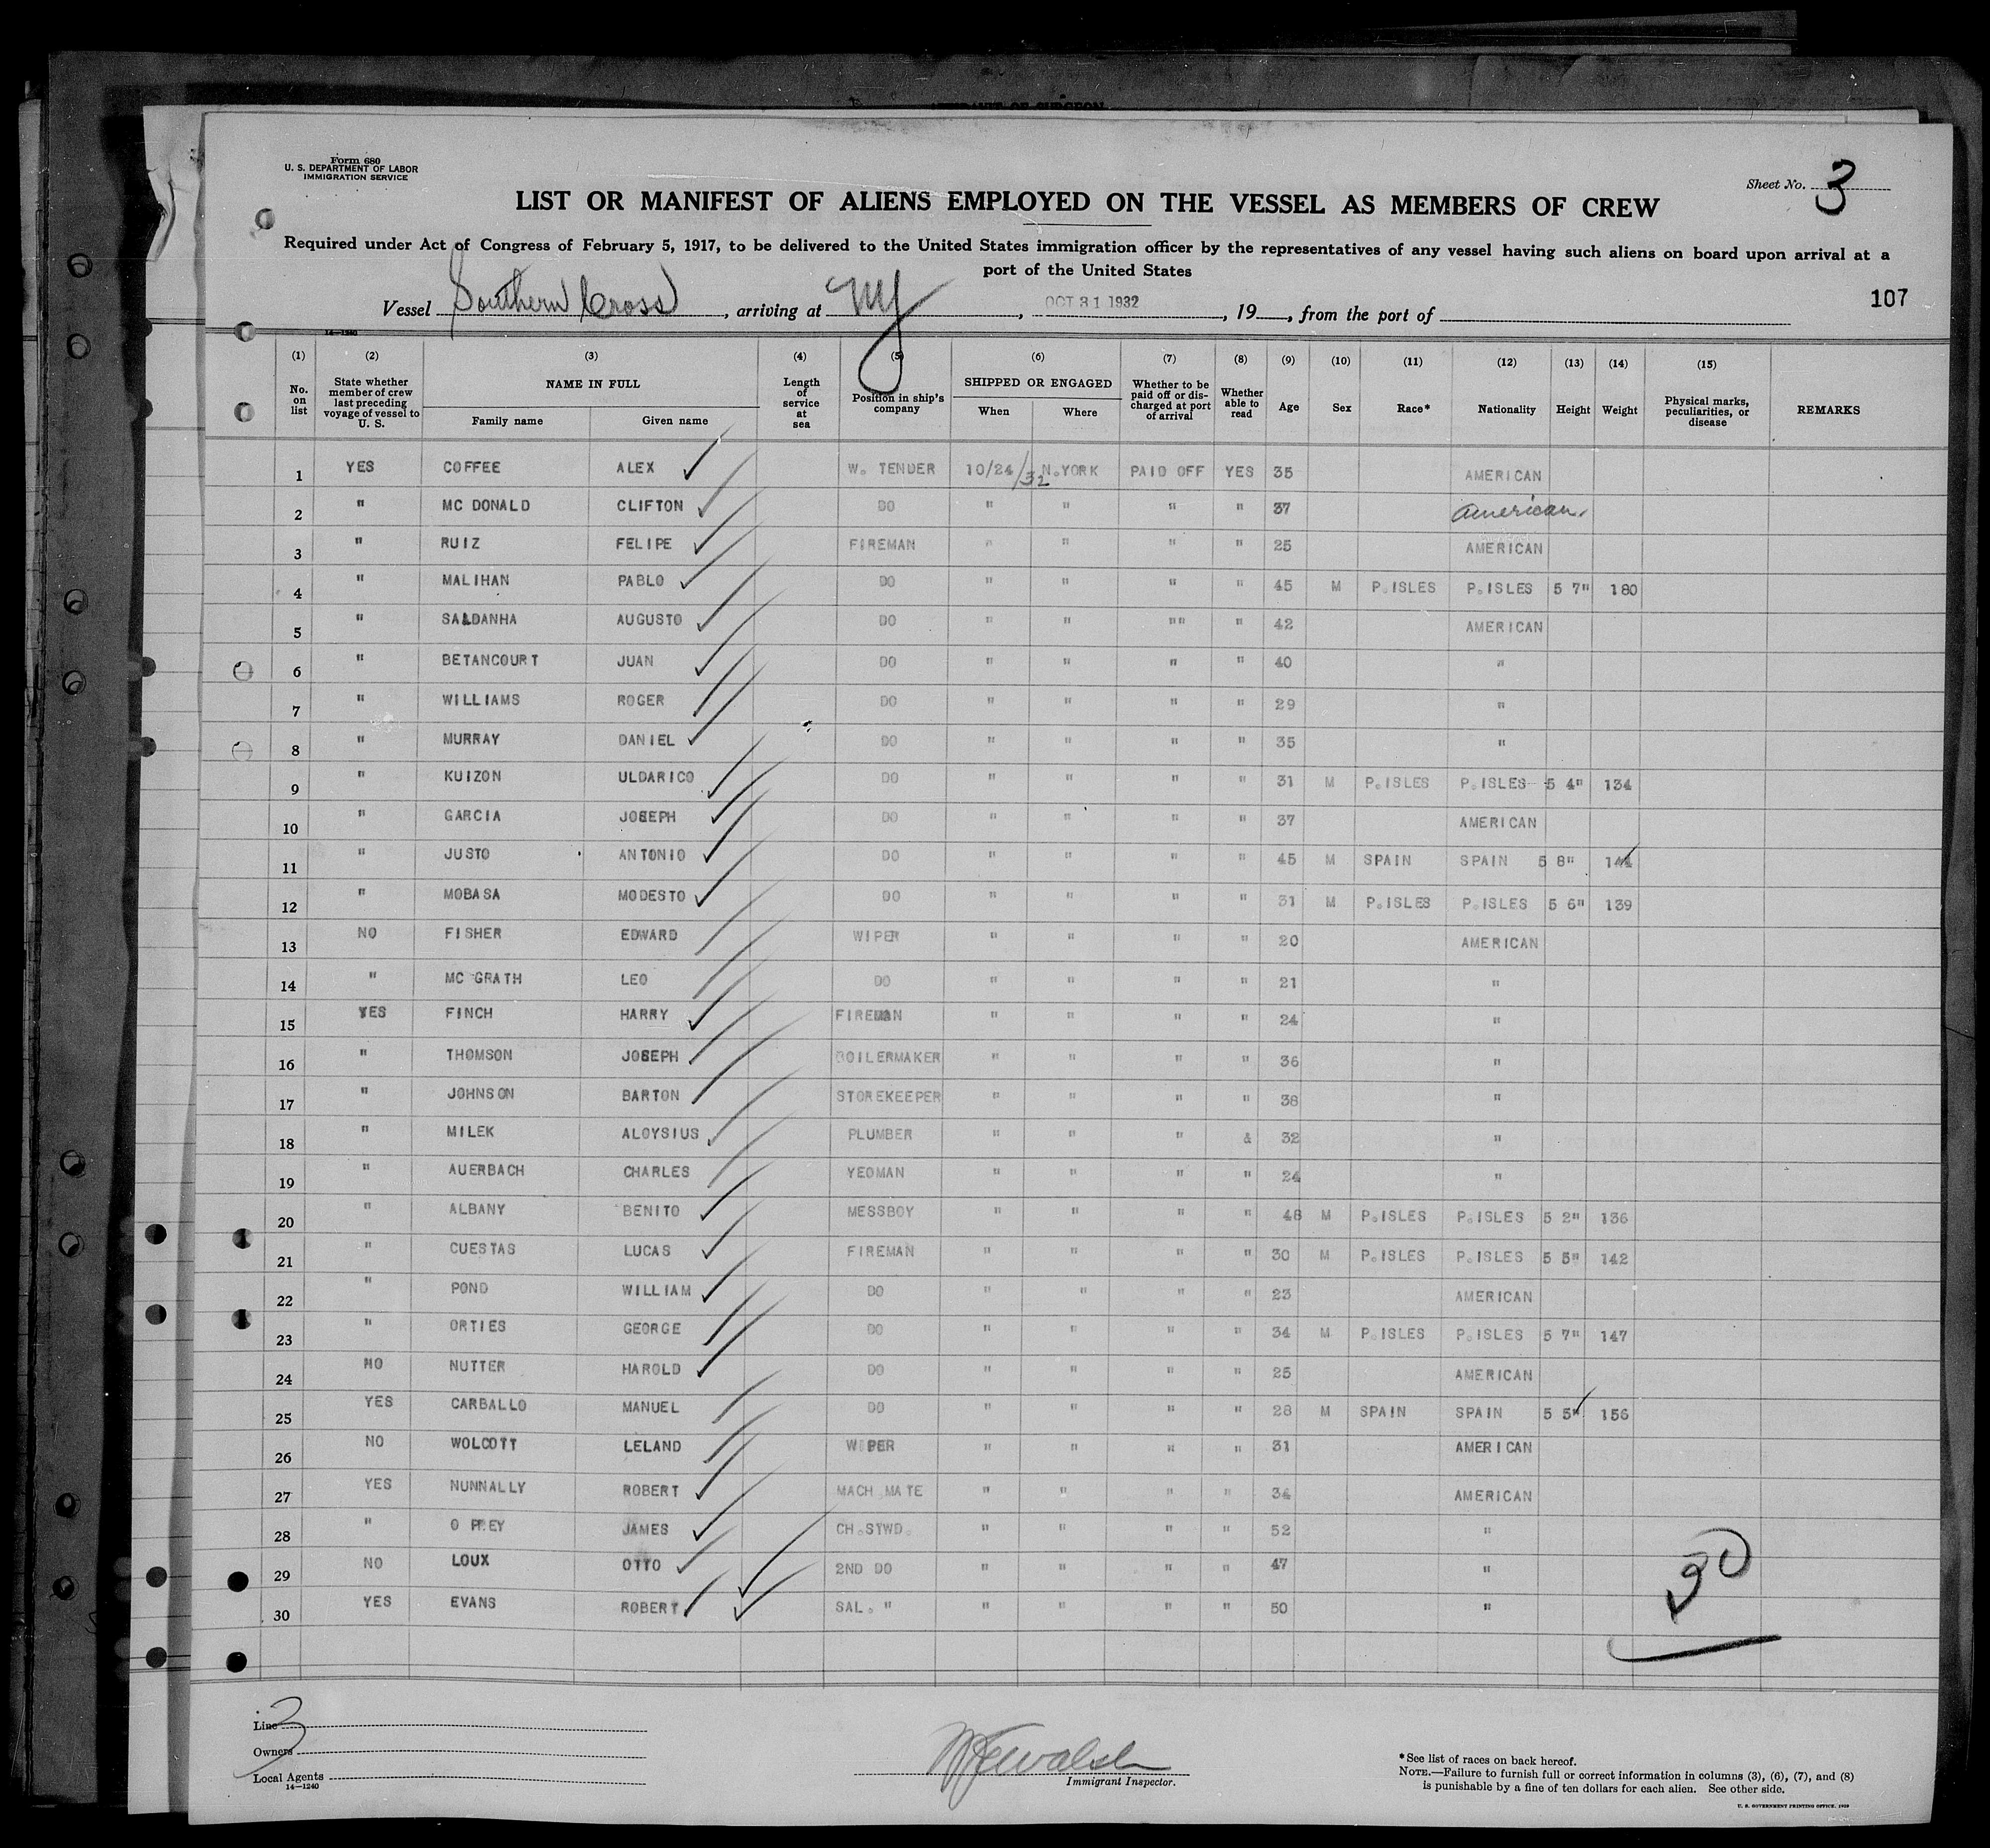 Form 680
U. S. DEPARTMENT OF LABOR
IMMIGRATION SERVICE
Sheet No. 3
LIST OR MANIFEST OF ALIENS EMPLOYED ON THE VESSEL AS MEMBERS OF CREW
Required under Act of Congress of February 5, 1917, to be delivered to the United States immigration officer by the representatives of any vessel having such aliens on board upon arrival at a
port of the United States
Vessel Southern Cross, arriving at NY, OCT 31 1932, 19__, from the port of
107
14—1240
(1) (2) (3) (4) (5) (6) (7) (8) (9) (10) (11) (12) (13) (14) (15)
No. on list | State whether member of crew last preceding voyage of vessel to U. S. | NAME IN FULL | Length of service at sea | Position in ship's company | SHIPPED OR ENGAGED | Whether to be paid off or discharged at port of arrival | Whether able to read | Age | Sex | Race* | Nationality | Height | Weight | Physical marks, peculiarities, or disease | REMARKS
Family name | Given name | When | Where
1 YES COFFEE ALEX W. TENDER 10/24/32 N.YORK PAID OFF YES 35 AMERICAN
2 " MC DONALD CLIFTON DO " " " " 37 American
3 " RUIZ FELIPE FIREMAN " " " " 25 AMERICAN
4 " MALIHAN PABLO DO " " " " 45 M P.ISLES P.ISLES 5 7" 180
5 " SALDANHA AUGUSTO DO " " "" " 42 AMERICAN
6 " BETANCOURT JUAN DO " " " " 40 "
7 " WILLIAMS ROGER DO " " " " 29 "
8 " MURRAY DANIEL DO " " " " 35 "
9 " KUIZON ULDARICO DO " " " " 31 M P.ISLES P.ISLES 5 4" 134
10 " GARCIA JOSEPH DO " " " " 37 AMERICAN
11 " JUSTO ANTONIO DO " " " " 45 M SPAIN SPAIN 5 8" 144
12 " MOBASA MODESTO DO " " " " 31 M P.ISLES P.ISLES 5 6" 139
13 NO FISHER EDWARD WIPER " " " " 20 AMERICAN
14 " MC GRATH LEO DO " " " " 21 "
15 YES FINCH HARRY FIREMAN " " " " 24 "
16 " THOMSON JOSEPH BOILERMAKER " " " " 36 "
17 " JOHNSON BARTON STOREKEEPER " " " " 38 "
18 " MILEK ALOYSIUS PLUMBER " " " & 32 "
19 " AUERBACH CHARLES YEOMAN " " " " 24 "
20 " ALBANY BENITO MESSBOY " " " " 48 M P.ISLES P.ISLES 5 2" 136
21 " CUESTAS LUCAS FIREMAN " " " " 30 M P.ISLES P.ISLES 5 5" 142
22 " POND WILLIAM DO " " " " 23 AMERICAN
23 " ORTIES GEORGE DO " " " " 34 M P.ISLES P.ISLES 5 7" 147
24 NO NUTTER HAROLD DO " " " " 25 AMERICAN
25 YES CARBALLO MANUEL DO " " " " 28 M SPAIN SPAIN 5 5" 156
26 NO WOLCOTT LELAND WIPER " " " " 31 AMERICAN
27 YES NUNNALLY ROBERT MACH MATE " " " " 34 AMERICAN
28 " JAMES CH.STWD. " " " " 52 "
29 NO LOUX OTTO 2ND DO " " " " 47 "
30 YES EVANS ROBERT SAL. " " " " " 50 "
30
Line 3
Owners
Local Agents
14—1240
Walsh
Immigrant Inspector.
*See list of races on back hereof.
NOTE.—Failure to furnish full or correct information in columns (3), (6), (7), and (8)
is punishable by a fine of ten dollars for each alien. See other side.